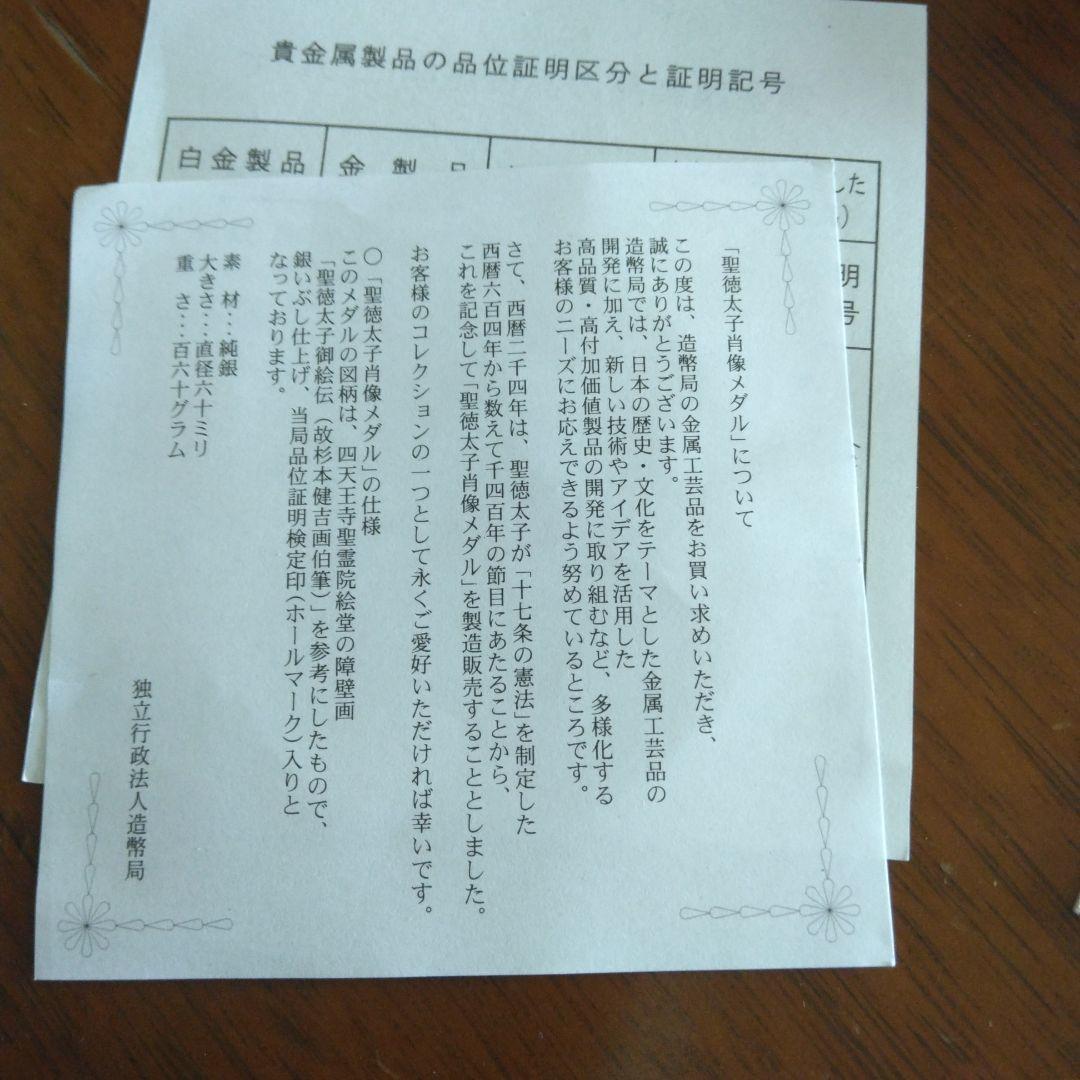 貴金属製品の品位証明区分と証明記号
白金製品
金製品
した
明
号
「聖徳太子肖像メダル」について
この度は、造幣局の金属工芸品をお買い求めいただき、
誠にありがとうございます。
造幣局では、日本の歴史・文化をテーマとした金属工芸品の
開発に加え、新しい技術やアイデアを活用した
高品質・高付加価値製品の開発に取り組むなど、多様化する
お客様のニーズにお応えできるよう努めているところです。
さて、西暦二千四年は、聖徳太子が「十七条の憲法」を制定した
西暦六百四年から数えて千四百年の節目にあたることから、
これを記念して「聖徳太子肖像メダル」を製造販売することとしました。
お客様のコレクションの一つとして永くご愛好いただければ幸いです。
〇「聖徳太子肖像メダル」の仕様
このメダルの図柄は、四天王寺聖霊院絵堂の障壁画
「聖徳太子御絵伝（故杉本健吉画伯筆）」を参考にしたもので、
銀いぶし仕上げ、当局品位証明検定印（ホールマーク）入りと
なっております。
素　材…純銀
大きさ…直径六十ミリ
重　さ…百六十グラム
独立行政法人造幣局